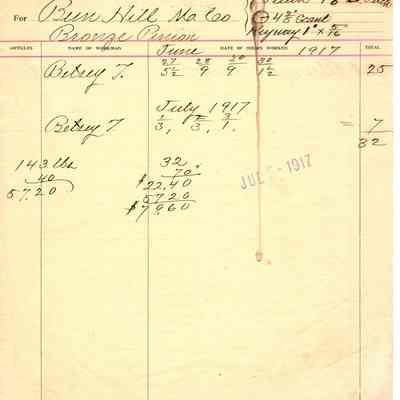 For Bun Hill Ma Co
⊙ 4 5/8 Crant
Bronze Pinion
Keyway 1" x 5/16
ARTICLES NAME OF WORKMAN DATE OF HOURS WORKED TOTAL
June 1917
27 28 29 30
Betsey T. 5½ 9 9 1½ 25
July 1917
1 2 3
Betsey T. 3, 3, 1. 7
32
143 lbs 32
40 70
57.20 $22.40
5720
$79.60
JUL - 1917